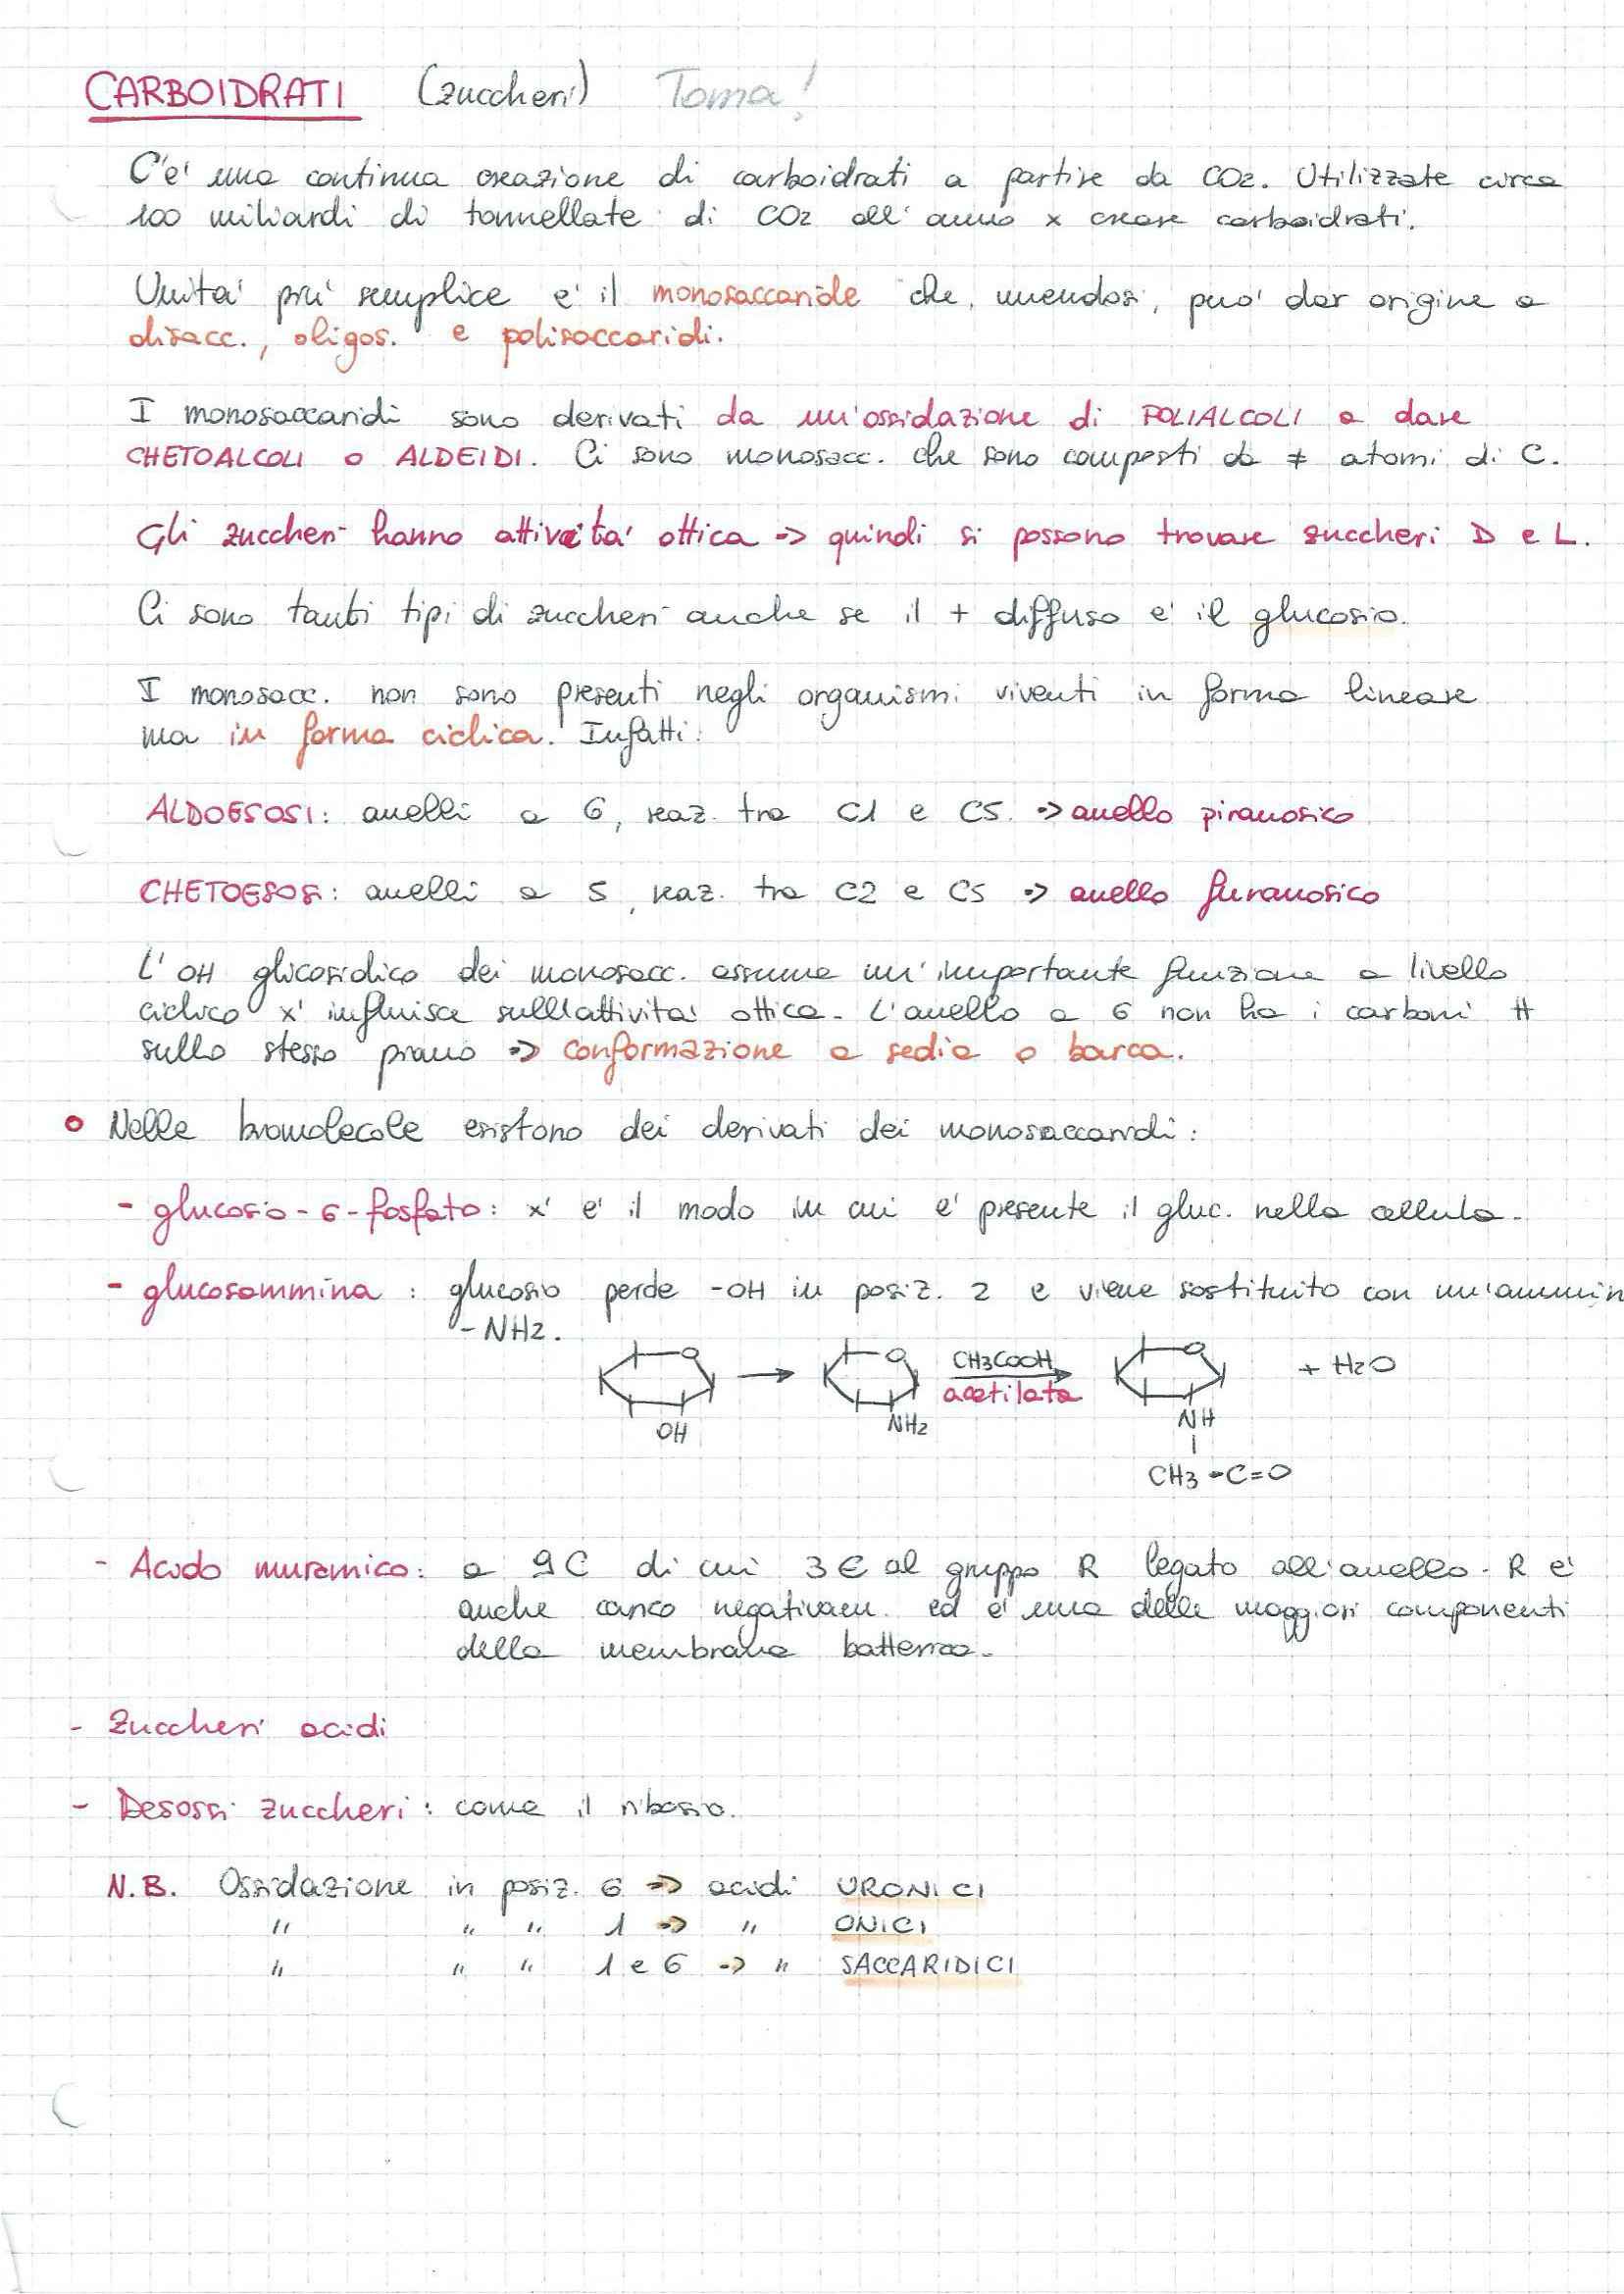 CARBOIDRATI (zuccheri) Toma!
C'e' una continua creazione di carboidrati a partire da CO2. Utilizzate circa
100 miliardi di tonnellate di CO2 all'anno x creare carboidrati.
Unita' più semplice e' il monosaccaride che, unendosi, puo' dar origine a
disacc., oligos. e polisaccaridi.
I monosaccaridi sono derivati da un'ossidazione di POLIALCOLI a dare
CHETOALCOLI o ALDEIDI. Ci sono monosacc. che sono composti da ≠ atomi di C.
Gli zuccheri hanno attivita' ottica => quindi si possono trovare zuccheri D e L.
Ci sono tanti tipi di zuccheri anche se il + diffuso e' il glucosio.
I monosacc. non sono presenti negli organismi viventi in forma lineare
ma in forma ciclica. Infatti:
ALDOESOSI: anelli a 6, reaz. tra C1 e C5. => anello piranosico
CHETOESOSI: anelli a 5, reaz. tra C2 e C5 => anello furanosico
L'OH glicosidico dei monosacc. assume un'importante funzione a livello
ciclico x' influisce sull'attivita' ottica. L'anello a 6 non ha i carboni #
sullo stesso piano => conformazione a sedia o barca.
Nelle biomolecole esistono dei derivati dei monosaccaridi:
- glucosio-6-fosfato: x' e' il modo in cui e' presente il gluc. nella cellula.
- glucosammina: glucosio perde -OH in posiz. 2 e viene sostituito con un'ammin
- NH2.
O O CH3COOH O + H2O
acetilata
OH NH2 NH
CH3-C=O
- Acido muramico: a 9C di cui 3 € al gruppo R legato all'anello. R e'
anche carico negativam. ed e' una delle maggiori componenti
della membrana batterica.
- Zuccheri acidi
- Desossi zuccheri: come il ribosio.
N.B. Ossidazione in posiz. 6 => acidi URONICI
" " " 1 => " ONICI
" " " 1 e 6 -> " SACCARIDICI